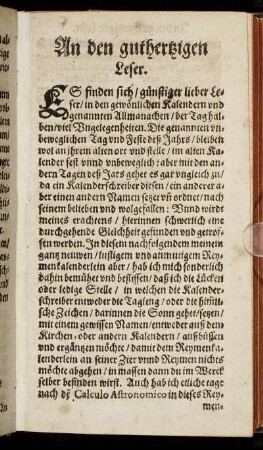 An den guthertzigen
Leser.
ES finden sich / günstiger lieber Le-
ser / in den gewönlichen Kalendern vnd
genannten Allmanachen / der Tag hal-
ben / viel Vngelegenheiten. Die genannten vn-
beweglichen Tag vnd Feste deß Jahrs / bleiben
wol an jhrem alten ort vnd stelle / im alten Ka-
lender fest vnnd vnbeweglich: aber mit den an-
dern Tagen deß Jars gehet es gar vngleich zu/
da ein Kalenderschreiber diesen / ein anderer a-
ber einen andern Namen setzet vñ ordnet / nach
seinem belieben vnd wolgefallen: Vnnd wirdt
meines erachtens / hierinnen schwerlich eine
durchgehende Gleichheit gefunden vnd getrof-
fen werden. In diesem nachfolgendem meinem
gantz neuwen / lustigem vnd anmutigem Rey-
menkalenderlein aber / hab ich mich sonderlich
dahin bemühet vnd beflissen / daß ich die Lücken
oder ledige Stelle / in welchen die Kalender-
schreiber entweder die Tagleng / oder die hitmli-
sche Zeichen / darinnen die Sonn gehet / setzen /
mit einem gewissen Namen / entweder auß dem
Kirchen- oder andern Kalendern / außbüssen
vnd ergäntzen möchte / damit dem Reymenka-
lenderlein an seiner Zier vnnd Reymen nichts
möchte abgehen / in massen dann du im Werck
selber befinden wirst. Auch hab ich etliche tage
nach dē Calculo Astronomico in dieses Rey-
men-